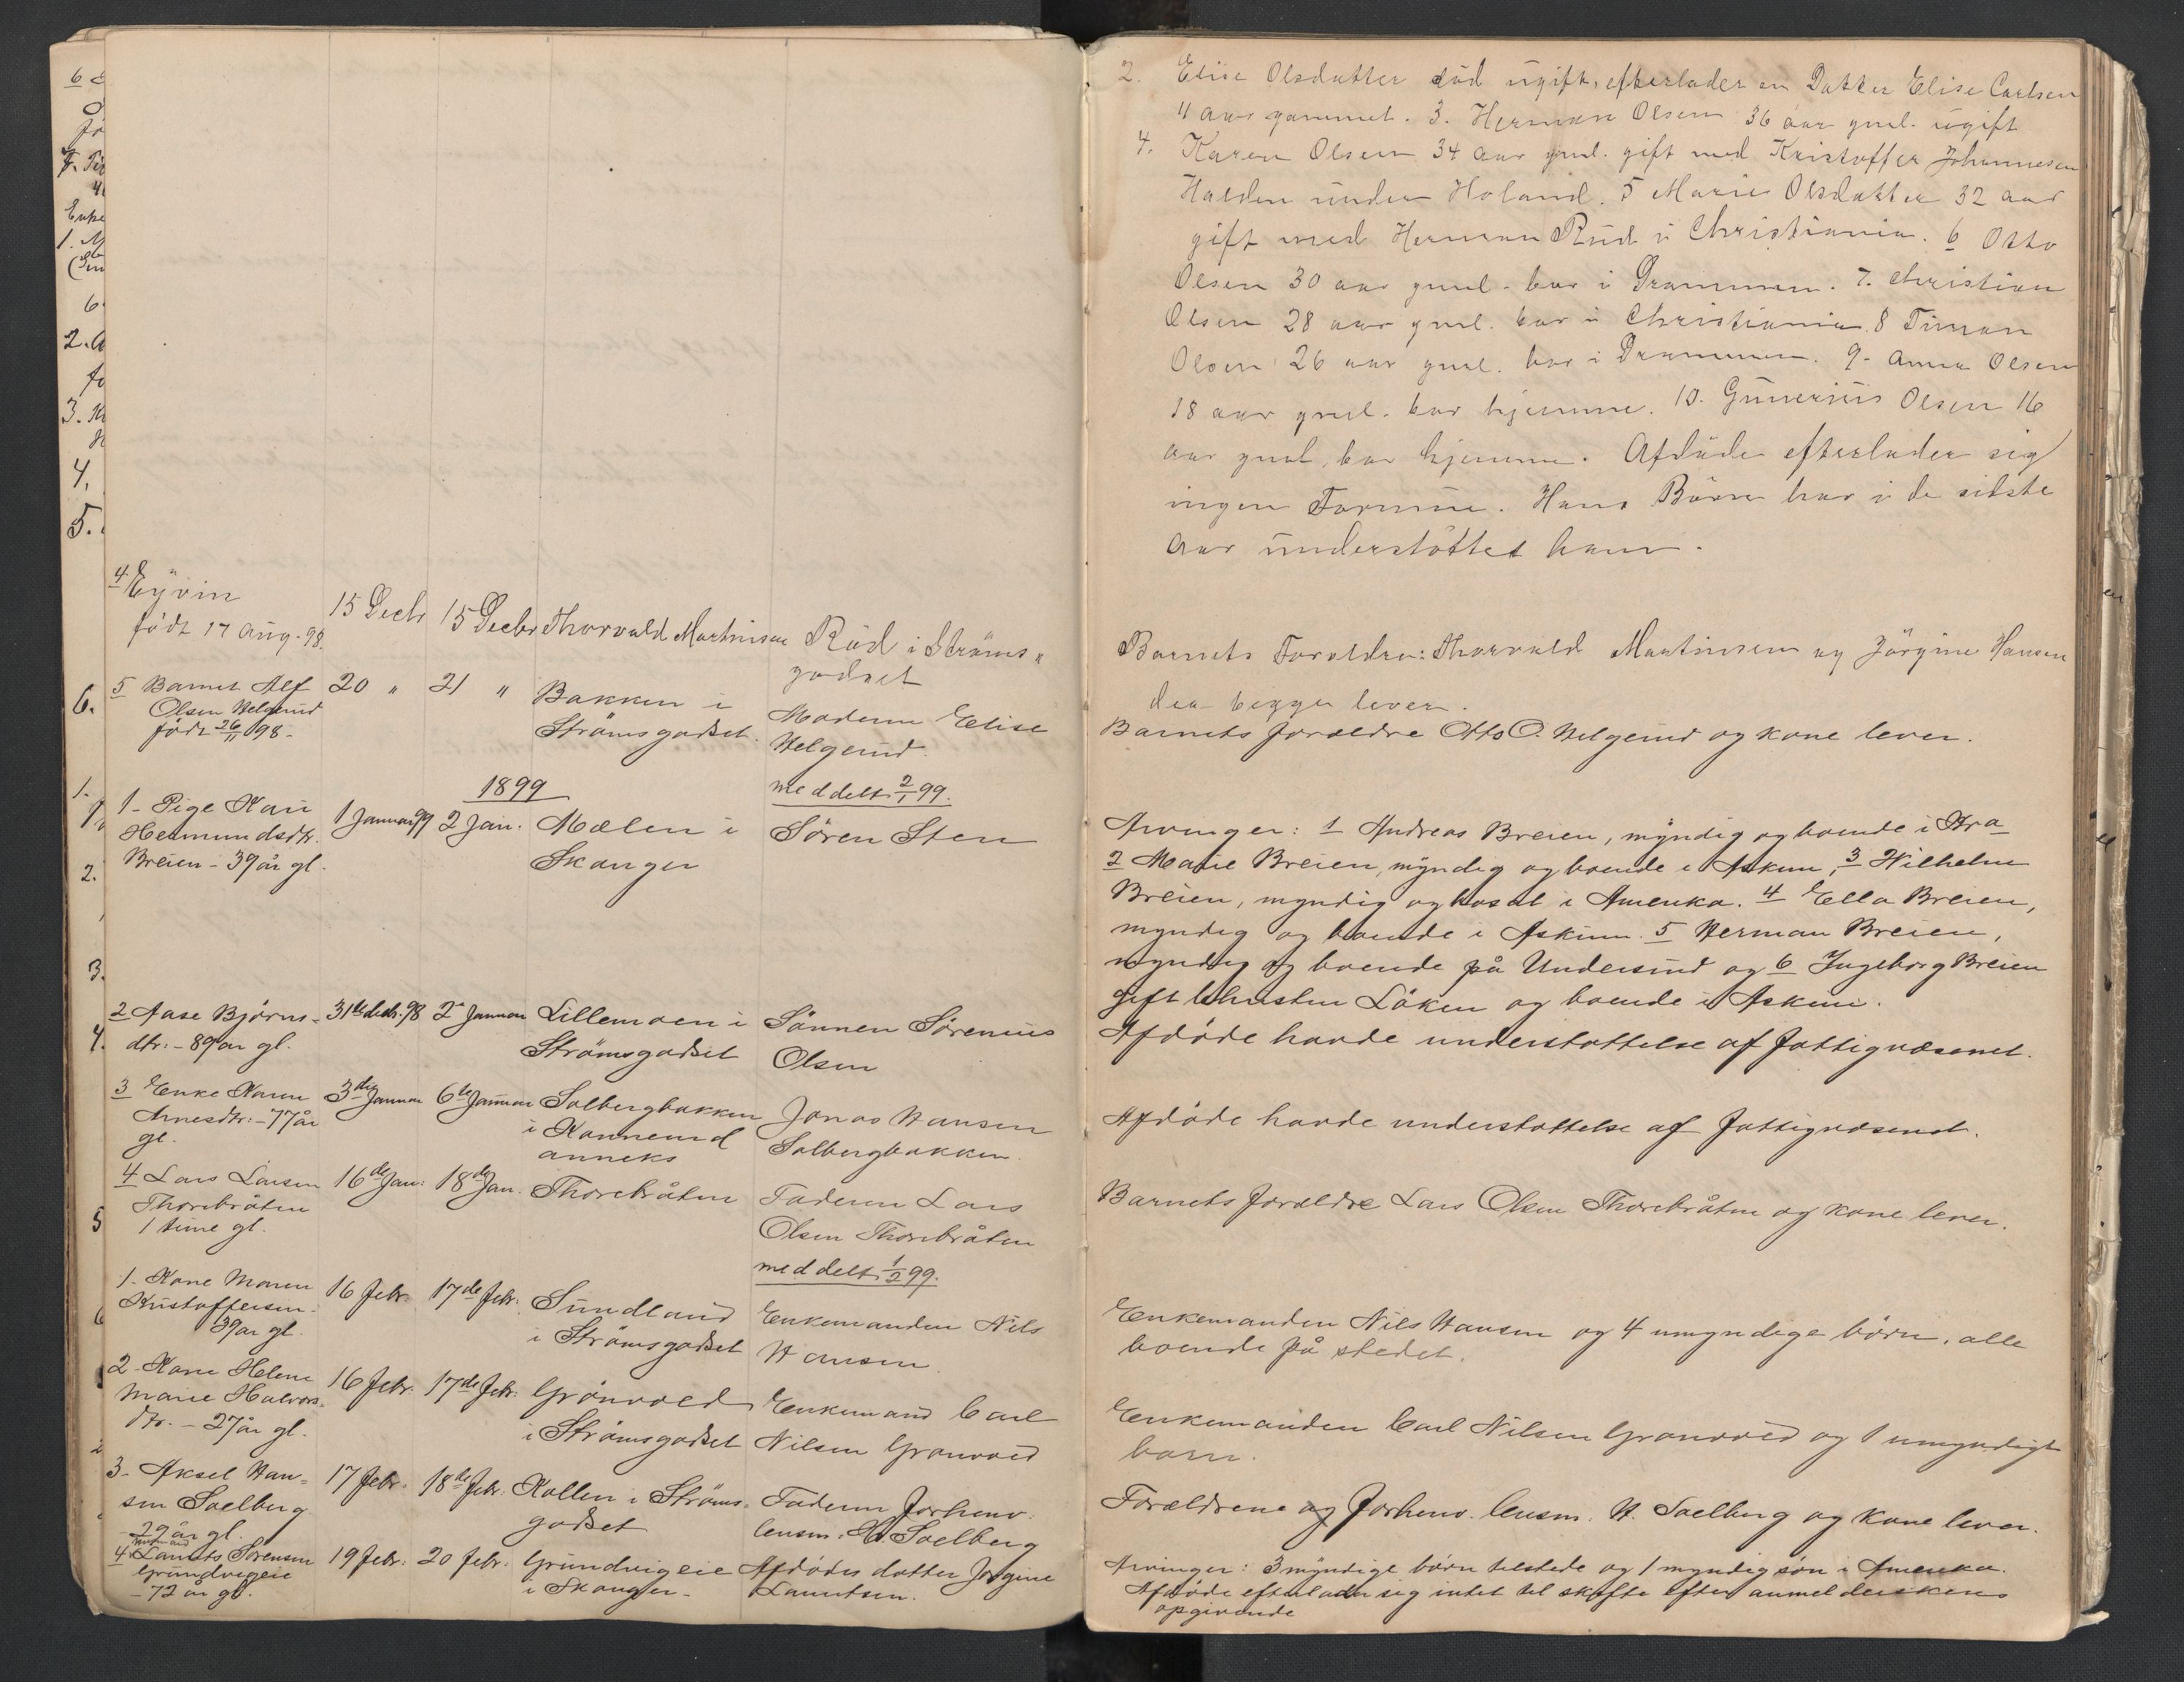 4 Eyvin
født 17 Aug. 98.
15 Decbr
15 Decbr
Thorvald Martinsen
Rud i Strøms"
godset
5 Barnet Alf
Olsen Helgerud
født 26/11 98 -
20 "
21 "
Bakken i
Strømsgodset.
Moderen Elise
Helgerud.
meddelt 2/1 99.
1899
1- Pige Kari
Hermundsdtr.
Breien - 39 år gl.
1 Januar 99
2 Jan.
Mælen i
Skanger
Søren Sten
2 Aase Bjørns-
dtr: - 89 år gl.
31te decbr. 98
2 Januar
Lillemoen i
Strømsgodset
Sønnen Sørenius
Olsen
3 Enke Karen
Arnesdtr: - 77 år
gl.
3die Januar
6te Januar
Solbergbakken
i Konnerud
anneks
Jonas Hansen
Solbergbakken.
4 Lars Larsen
Thorsbråten
1 time gl.
16de Jan:
18de Jan.
Thorsbråten
Faderen Lars
Olsen Thorsbråten
meddelt 1/2 99.
1. Kone Maren
Kristoffersen -
39 år gl.
16 febr.
17de febr.
Sundland
i Strømsgodset
Enkemanden Nils
Hansen.
2 - Kone Helene
Marie Halvors-
dtr. - 27 år gl.
16 febr.
17de febr:
Grønvold
i Strømsgodset
Enkemand Carl
Nilsen Grønvold
3 - Aksel Han-
sen Soelberg
- 29 år gl.
17 febr.
18de febr.
Kollen i Strøms-
godset
Faderen forhenv.
lensm. H. Soelberg
4. Laurits Sørensen
Grundvigeie
- 72 år gl.
19 febr:
20 febr:
Grundvigeie
i Skanger -
Afdødes datter Jørgine
Lauritsen.
2. Elise Olsdatter død ugift, efterlader en Datter Elise Carlsen
11 aar gammel. 3. Herman Olsen 36 aar gml. ugift
4. Karen Olsen 34 aar gml. gift med Kristoffer Johannesen
Halden under Holand. 5 Marie Olsdatter 32 aar
gift med Herman Rud i Christiania. 6 Otto
Olsen 30 aar gml. bor i Drammen. 7. Christian
Olsen 28 aar gml. bor i Christiania. 8 Timan
Olsen 26 aar gml. bor i Drammen. 9- Anna Olsen
18 aar gml. bor hjemme. 10. Gunerius Olsen 16
aar gml. bor hjemme. Afdøde efterlader sig
ingen Formue. Hans Børn har i de sidste
Aar understøttet ham.
Barnets Forældre: Thorvald Martinsen og Jørgine Hansen
der begge lever.
Barnets forældre Otto O. Helgerud og kone lever.
Arvinger: 1 Andreas Breien, myndig og boende i Kra
2 Marie Breien, myndig og boende i Askim, 3 Wilhelm
Breien, myndig og bosat i Amerika. 4 Ella Breien,
myndig og boende i Askim. 5 Herman Breien,
myndig og boende på Undersrud og 6 Ingeborg Breien
gift Christen Løken og boende i Askim.
Afdøde havde understøttelse af fattigvæsenet.
Afdøde havde understøttelse af fattigvæsenet.
Barnets forældre Lars Olsen Thorsbråten og kone lever.
Enkemanden Nils Hansen og 4 umyndige børn, alle
boende på stedet.
Enkemanden Carl Nilsen Grønvold og 1 umyndigt
barn.
Forældrene og forhenv. lensm. H. Soelberg og kone lever.
Arvinger: 3 myndige børn tilstede og 1 myndig søn i Amerika.
Afdøde efterlader sig intet til skifte efter anmelderskens
opgivende